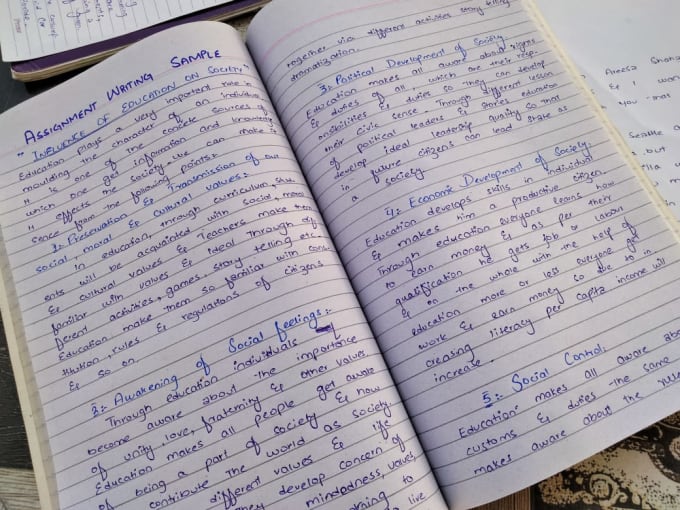 ASSIGNMENT WRITING SAMPLE
"INFLUENCE OF EDUCATION ON SOCIETY"
Education Plays a very important role in
moulding the character of an individual
It is one of the concete sources of
which one get information and knowledge
It effects the society. We can make it
sence from the following points:
1:- Preservation & Transmission of our
social, moral & cultural values:
In education, through curriculum, stud
ents will be acquainted with social, moral
& cultural values & Teachers make them
familiar with values & ideal through dif
ferent activities, games, story telling etc.
Education make them so familiar with cons
titution, rules & regulations of citizens
& so on.
2:- Awakening of Social feelings:-
Through education individuals
become aware about the importance
of unity, love, fraternity & other values
Education makes all people get aware
of being a part of society & how
contribute the world as society
different values & life
they develop concern of
mindedness, values
to
live
together via different activities story telling
dramatization.
3:- Political Development of Society:
Education makes all aware about rights
& duties of all, which are their resp-
onsibilities & duties so they can develop
their civic sense. Through different lesson
of political leaders & stories education
develop ideal leadership quality so that
in future citizens can lead state as
a society.
4:- Economic Development of Society:-
Education develops skills in individual
& makes him a productive citizen.
Through education everyone learns how
to earn money & as per their
qualification he gets job or labour
& on the whole with the help of
education more or less everyone get
work & earn money so due to in
creasing literacy per capita income will
increase.
5:- Social Control:
Education makes all aware abo
customs & duties the same
makes aware about the rules
Areesa
& I wan
You that
Seattle a
but